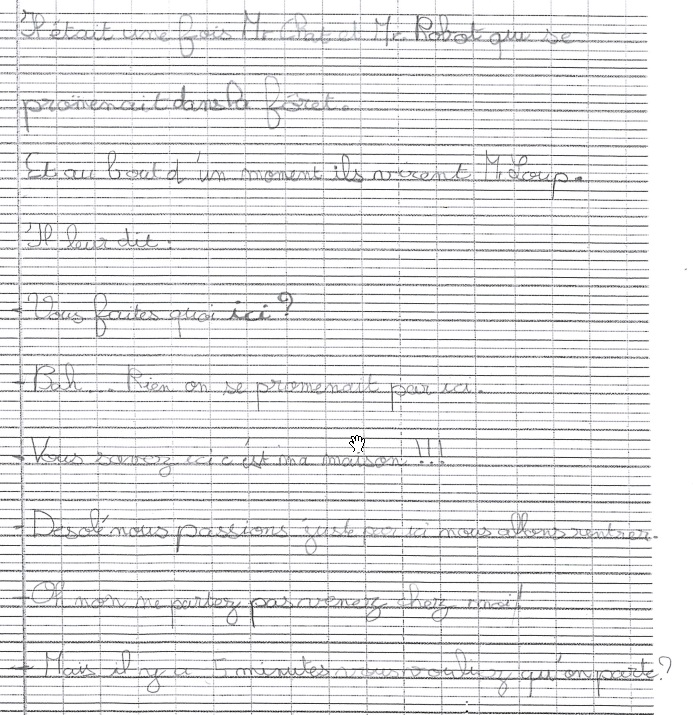 Il était une fois Mr Chat et Mr Robot qui se
promenait dans la fôret.
Et au bout d'un moment ils virent Mr Loup.
Il leur dit :
- Vous faites quoi ici ?
- Bah... Rien on se promenait par ici.
- Vous savez ici c'est ma maison !!!
- Desolé nous passions juste par ici nous allons rentrer.
- Oh non ne partez pas venez chez moi !
- Mais il y a 5 minutes vous vouliez qu'on parte ?